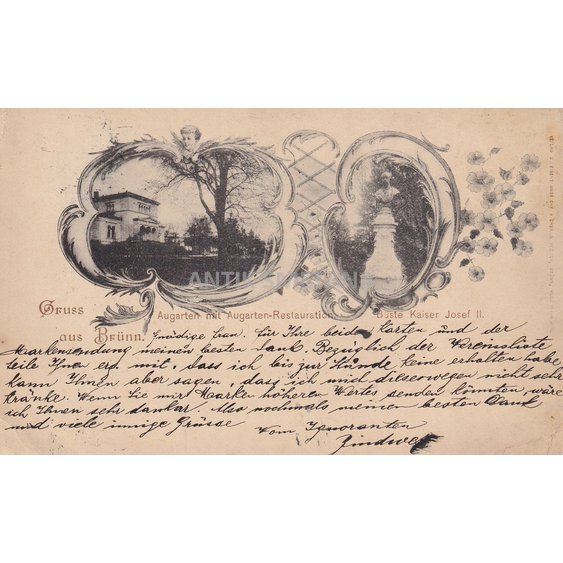 Augarten mit Augarten-Restauration.
Büste Kaiser Josef II.
Gruss
aus Brünn.
Gnädige Frau. Für Ihre beiden Karten und der
Markensendung meinen besten Dank. Bezüglich der Vereinsliste
teile Ihnen erg. mit, dass ich bis zur Stunde keine erhalten habe,
kann Ihnen aber sagen, dass ich mich dieserwegen nicht sehr
kränke. Wenn Sie mir Marken höheren Wertes senden könnten, wäre
ich Ihnen sehr dankbar. Also nochmals meinen besten Dank
und viele innige Grüsse
Vom Ignoranten